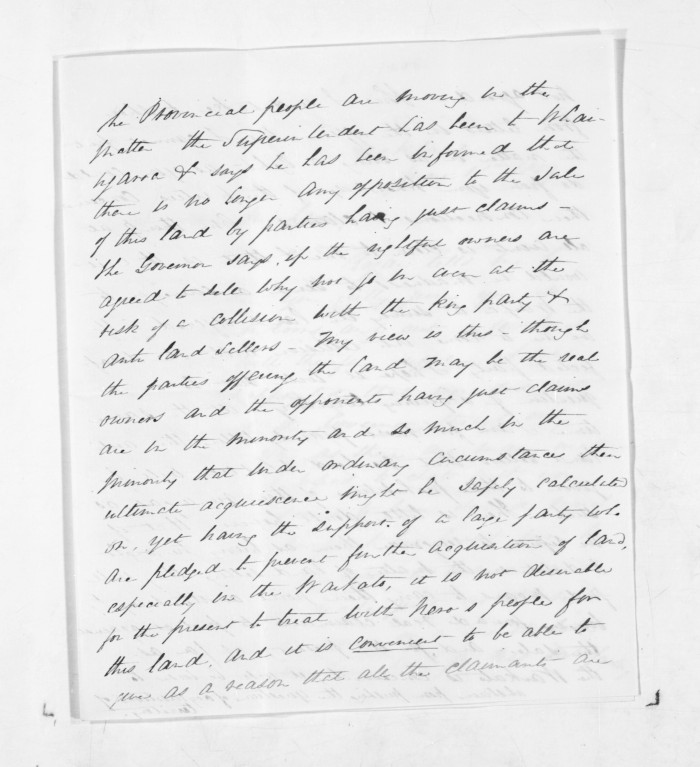 The Provincial people are moving in the
Matter the Superintendent has been to Whai-
ngaroa & says he has been informed that
there is no longer any opposition to the sale
of this land by parties having just claims -
The Governor says, if the rightful owners are
agreed to sell why not go on even at the
risk of a collision with the King party &
anti land sellers - My view is this - though
the parties offering the land may be the real
owners and the opponents having just claims
are in the minority and so much in the
minority that under ordinary circumstances their
ultimate acquiescence might be safely calculated
on, yet having the support of a large party who
are pledged to prevent further acquisition of land,
especially in the Waikato, it is not desirable
for the present to treat with people for
this land. and it is convenient to be able to
give as a reason that all the claimants are